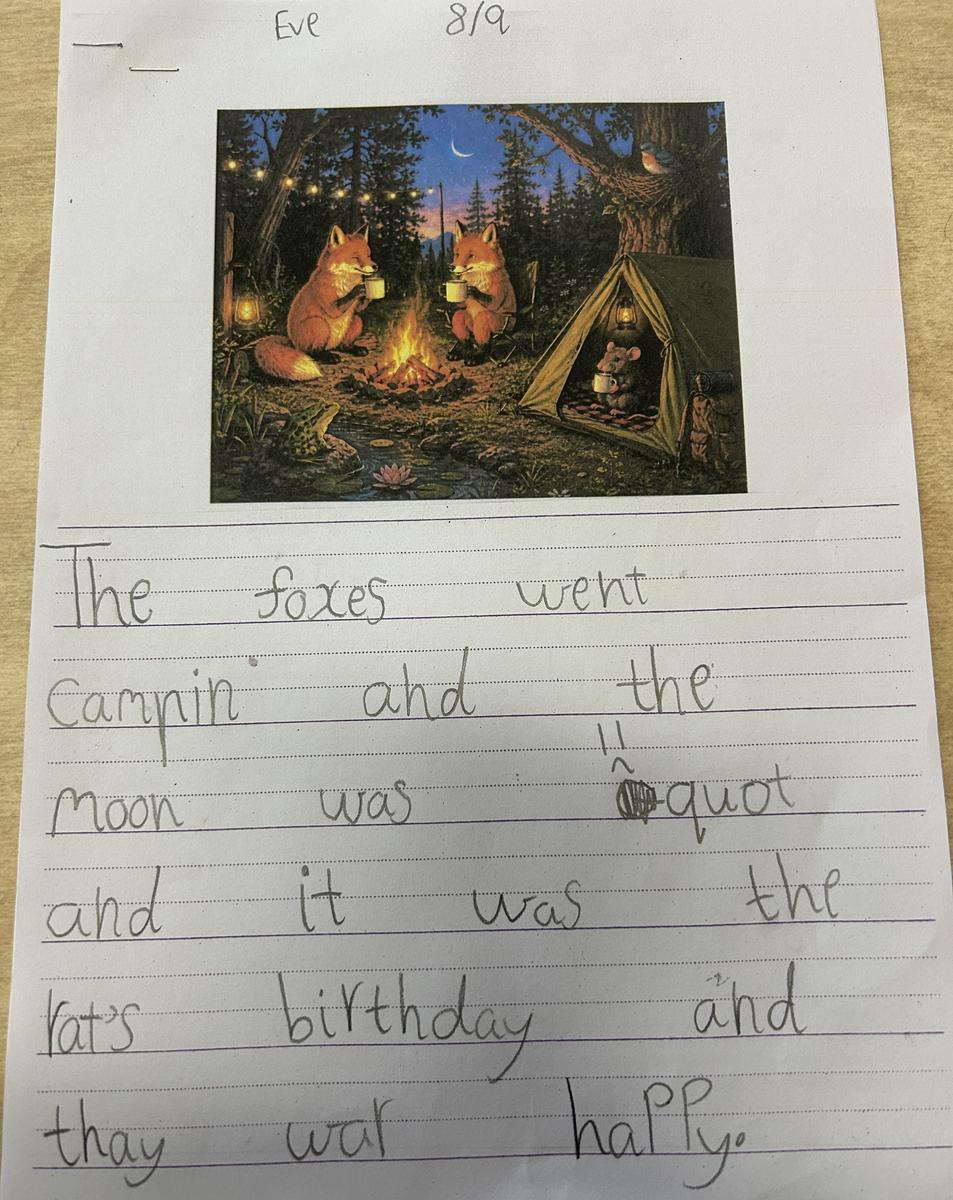 Eve 8/9
The foxes went
Campin and the
Moon was quot
and it was the
rat's birthday and
thay war happy.